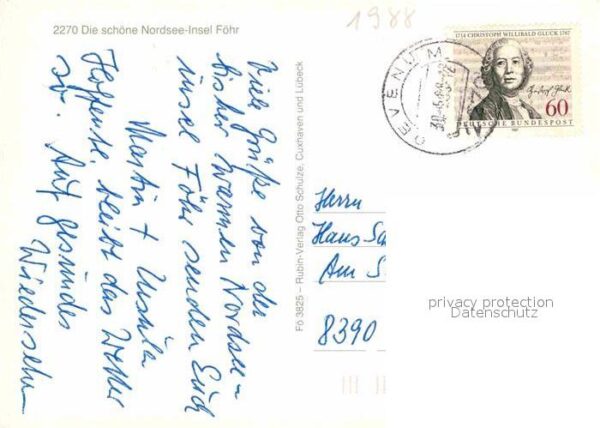 2270 Die schöne Nordsee-Insel Föhr
Viele Grüße von der
bisher warmen Nordsee-
insel Föhr senden Euch
Martin + Ursula
Hoffentl. bleibt das Wetter
so. Auf gesundes
Wiedersehen
Fö 3825 – Rubin-Verlag Otto Schulze, Cuxhaven und Lübeck
1988
OEVENUM
1714 CHRISTOPH WILLIBALD GLUCK 1787
60
DEUTSCHE BUNDESPOST
Herrn
Hans Sch
Am S
8390
privacy protection
Datenschutz